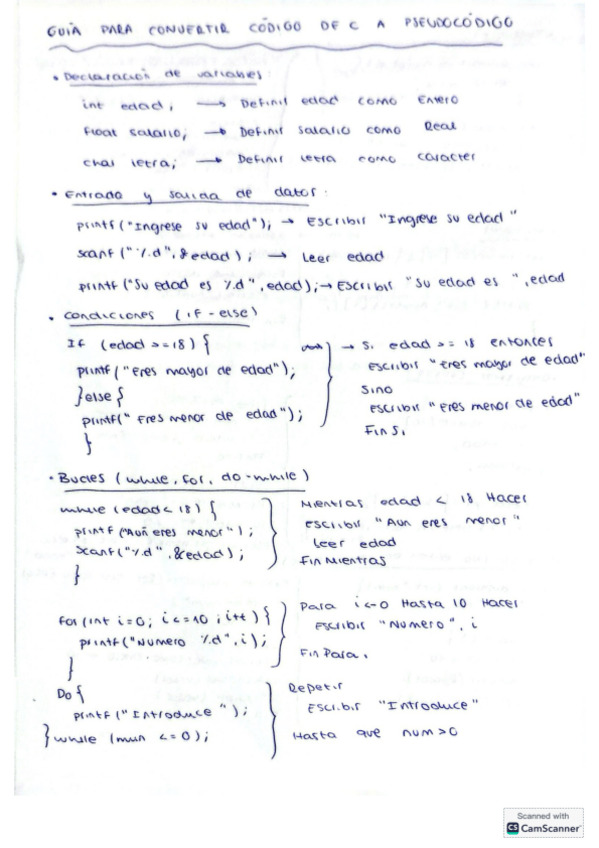 GUIA PARA CONVERTIR CÓDIGO DE C A PSEUDOCÓDIGO
• Declaración de variables:
int edad; → Definir edad como Entero
float salario; → Definir salario como Real
char letra; → Definir letra como caracter
• Entrada y salida de datos:
printf("Ingrese su edad"); → Escribir "Ingrese su edad"
scanf("%d", &edad); → Leer edad
printf("Su edad es %d", edad); → Escribir "Su edad es ", edad
• Condiciones (if-else)
If (edad >= 18) { → Si edad >= 18 entonces
printf("Eres mayor de edad"); escribir "eres mayor de edad"
}else{ Sino
printf("Eres menor de edad"); escribir "eres menor de edad"
} Fin Si
• Bucles (while, for, do-while)
while (edad < 18) { Mientras edad < 18 Hacer
printf("Auñ eres menor"); escribir "Aun eres menor"
scanf("%d", &edad); Leer edad
} Fin Mientras
for (int i=0; i<=10; i++) { Para i<-0 Hasta 10 Hacer
printf("Numero %d", i); Escribir "Numero", i
} Fin Para.
Do { Repetir
printf("Introduce "); Escribir "Introduce"
} while (num <= 0); Hasta que num>0
Scanned with
CS CamScanner